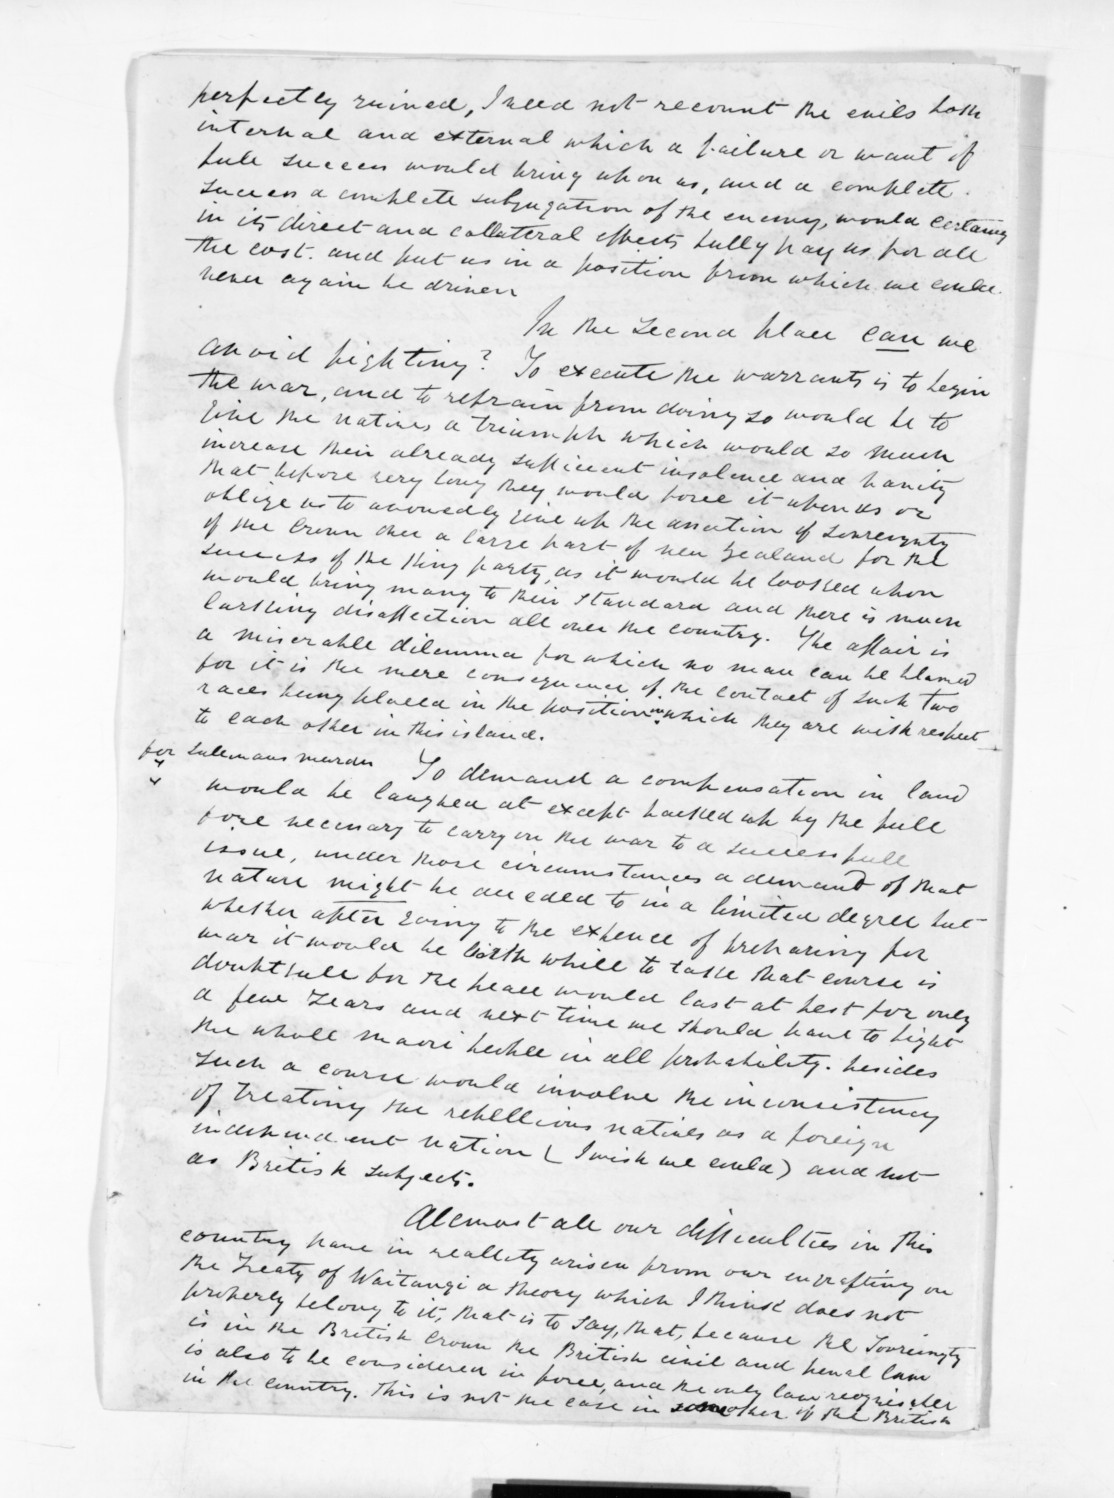 perfectly ruined, I need not recount the evils both
internal and external which a failure or want of
full success would bring upon us, and a complete
success a complete subjugation of the enemy, would certainly
in its direct and collateral effects fully pay us for all
the cost. and put us in a position from which we could
never again be driven
In the second place can we
avoid fighting? To execute the warrants is to begin
the war, and to refrain from doing so would be to
give the natives a triumph which would so much
increase their already sufficient insolence and vanity
that before very long they would force it upon us or
oblige us to avowedly give up the assertion of sovreignty
of the Crown over a large part of new Zealand for the
success of the King party, as it would be looked upon
would bring many to their standard and there is much
lurking disaffection all over the country. The affair is
a miserable dilemma for which no man can be blamed
for it is the mere consequence of the contact of such two
races being placed in the position in which they are with respect
to each other in this island.
for Sullivans murder To demand a compensation in land
would be laughed at except backed up by the full
force necessary to carry on the war to a successfull
issue, under those circumstances a demand of that
nature might be acceded to in a limited degree but
whether after going to the expence of preparing for
war it would be worth while to take that course is
doubtfull for the peace would last at best for only
a few years and next time we should have to fight
the whole maori people in all probability. besides
such a course would involve the inconsistency
of treating the rebellious natives as a foreign
independent nation (I wish we could) and not
as British subjects.
Allmost all our difficulties in this
country have in reallity arisen from our engrafting on
the Treaty of Waitangi a theory which I think does not
properly belong to it, that is to say, that, because the Sovreingty
is in the British Crown the British civil and penal law
is also to be considered in force, and the only law recognisable
in the country. This is not the case in some other of the British